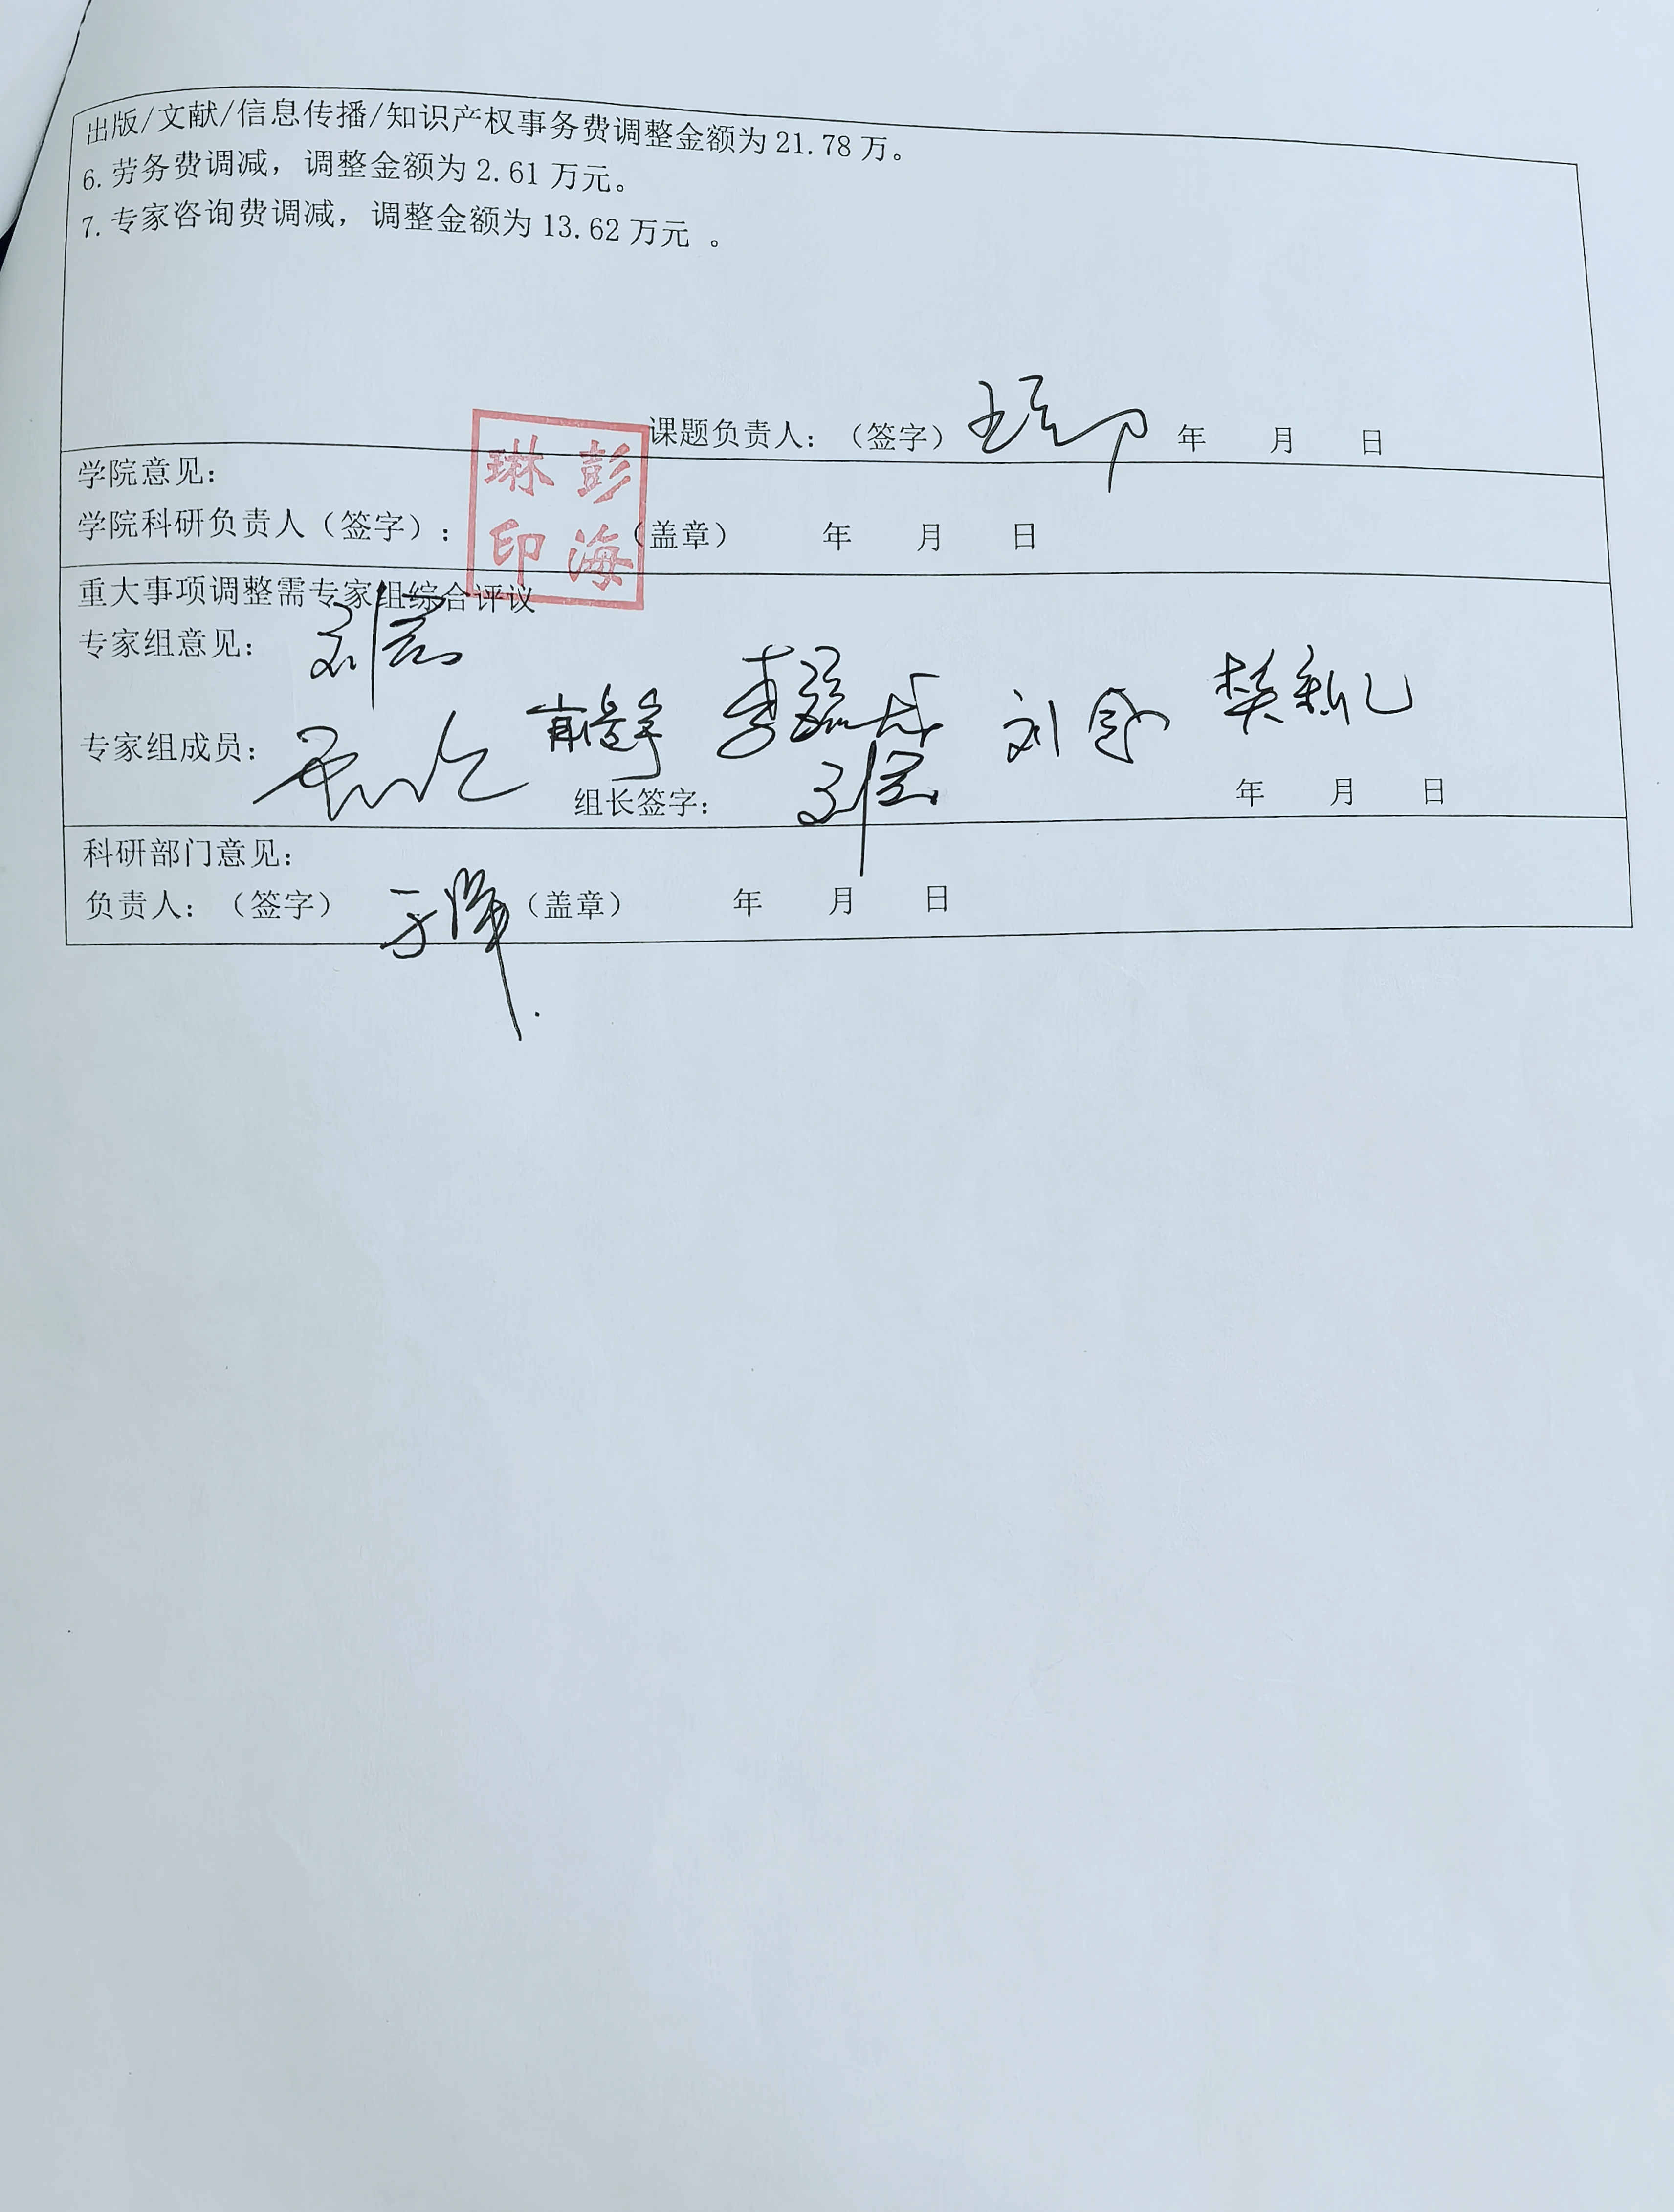 出版/文献/信息传播/知识产权事务费调整金额为 21.78 万。
6. 劳务费调减，调整金额为 2.61 万元。
7. 专家咨询费调减，调整金额为 13.62 万元 。
课题负责人：（签字） 年 月 日
学院意见：
学院科研负责人（签字）： 彭海琳印 （盖章） 年 月 日
重大事项调整需专家组综合评议
专家组意见：
专家组成员： 刘
组长签字： 年 月 日
科研部门意见：
负责人：（签字） （盖章） 年 月 日